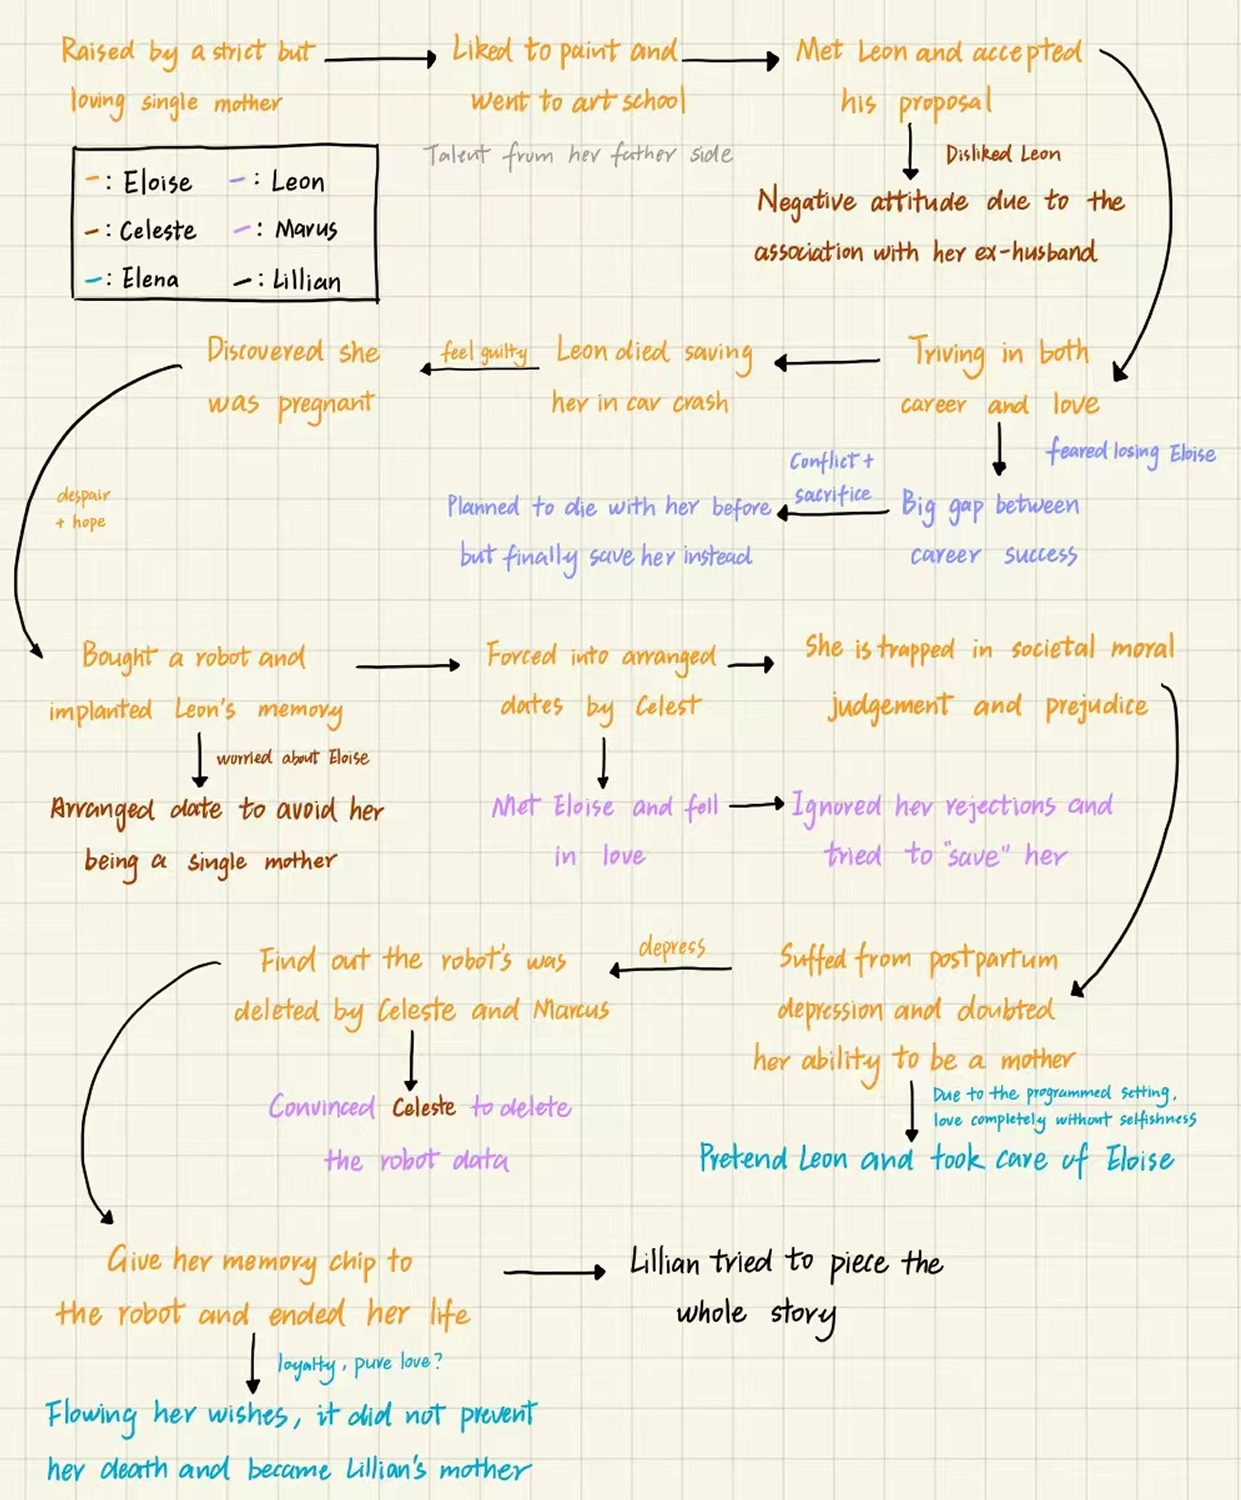 Raised by a strict but
loving single mother
Liked to paint and
went to art school
Talent from her father side
Met Leon and accepted
his proposal
Disliked Leon
Negative attitude due to the
association with her ex-husband
-: Eloise
-: Leon
-: Celeste
-: Marus
-: Elena
-: Lillian
Triving in both
career and love
feared losing Eloise
Big gap between
career success
Conflict +
sacrifice
Planned to die with her before
but finally save her instead
Leon died saving
her in car crash
feel guilty
Discovered she
was pregnant
despair
+ hope
Bought a robot and
implanted Leon's memory
worried about Eloise
Arranged date to avoid her
being a single mother
Forced into arranged
dates by Celest
Met Eloise and fell
in love
Ignored her rejections and
tried to "save" her
She is trapped in societal moral
judgement and prejudice
Suffed from postpartum
depression and doubted
her ability to be a mother
Due to the programmed setting,
love completely without selfishness
Pretend Leon and took care of Eloise
depress
Find out the robot's was
deleted by Celeste and Marcus
Convinced Celeste to delete
the robot data
Give her memory chip to
the robot and ended her life
loyalty, pure love?
Flowing her wishes, it did not prevent
her death and became Lillian's mother
Lillian tried to piece the
whole story